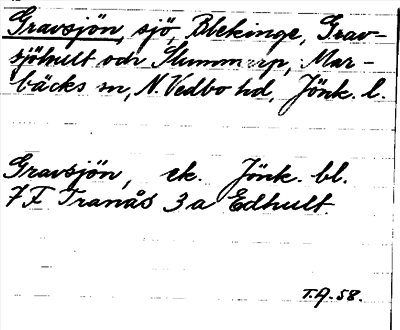 Gravsjön, sjö, Blekinge, Grav-
sjöhult och Slummarp, Mar-
bäcks sn, N. Vedbo hd, Jönk. l.
Gravsjön, ek. Jönk. bl.
7 F Tranås 3 a Edhult.
T.A. 58.